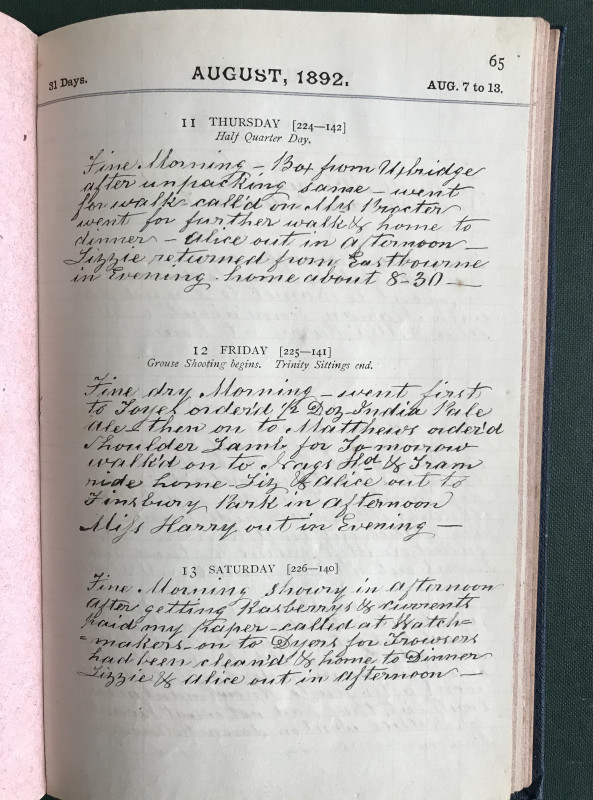 65
31 Days.
AUGUST, 1892.
AUG. 7 to 13.
11 THURSDAY [224—142]
Half Quarter Day.
Fine Morning – Box from Uxbridge
after unpacking same – went
for walk – call'd on Mrs Procter
went for further walk & home to
dinner – Alice out in afternoon —
Lizzie returned from Eastbourne
in Evening home about 8-30 —
12 FRIDAY [225—141]
Grouse Shooting begins. Trinity Sittings end.
Fine dry Morning – went first
to Toyes order'd ½ Doz India Pale
ale – then on to Matthews order'd
Shoulder Lamb for Tomorrow
walk'd on to Nags Hd & Tram
ride home – Liz & Alice out to
Finsbury Park in afternoon
Miss Harry out in Evening —
13 SATURDAY [226—140]
Fine Morning showry in afternoon
after getting Rasberrys & currents
paid my Paper – called at Watch=
=makers – on to Dyers for Trowsers
had been clean'd & home to Dinner
Lizzie & Alice out in afternoon —